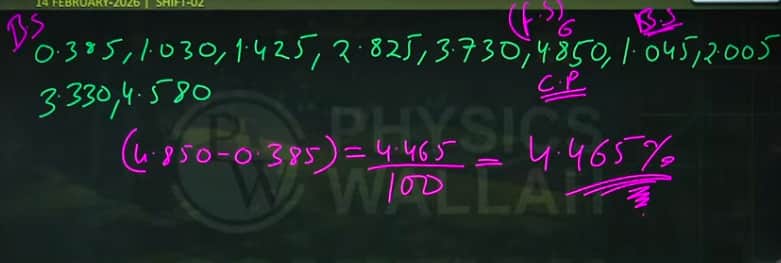 14 FEBRUARY-2026 | SHIFT-02
(F.S)
B.S 6 B.S
0.385, 1.030, 1.425, 2.825, 3.730, 4.850, 1.045, 2.005
C.P
3.330, 4.580
PHYSICS
WALLAH
(4.850-0.385) = 4.465/100 = 4.465%